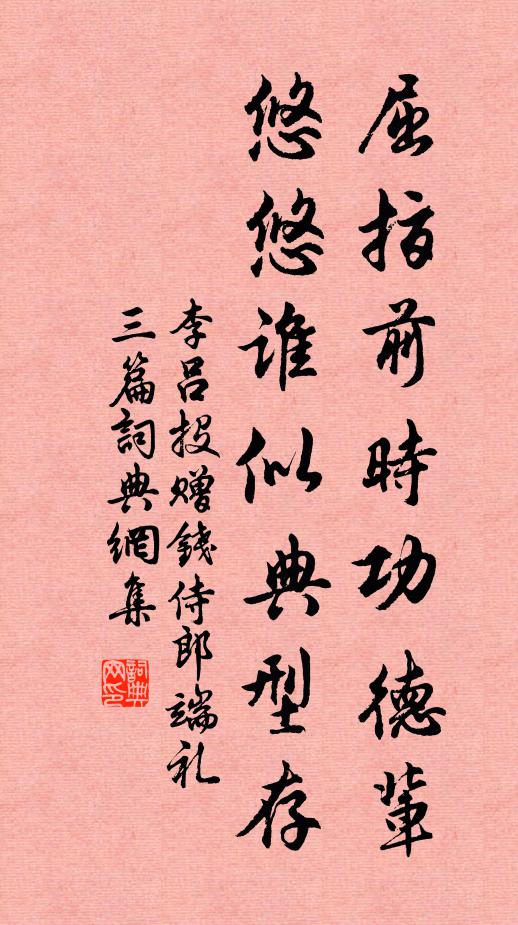 屈指前時功德輩
悠悠誰似典型存
李吕投赠錢侍郎端礼
三篇詞典網集
詞典网印